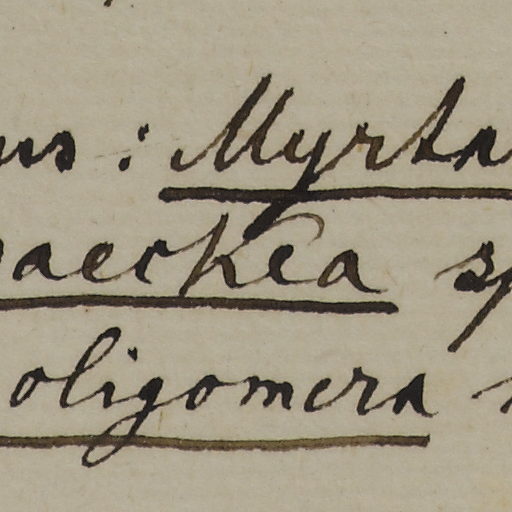 us : Myrta
baeckea sp
oligomera